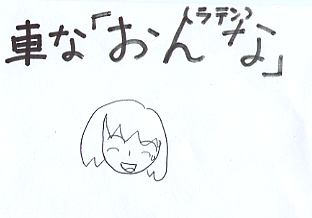 ラテン
車な「おんな」